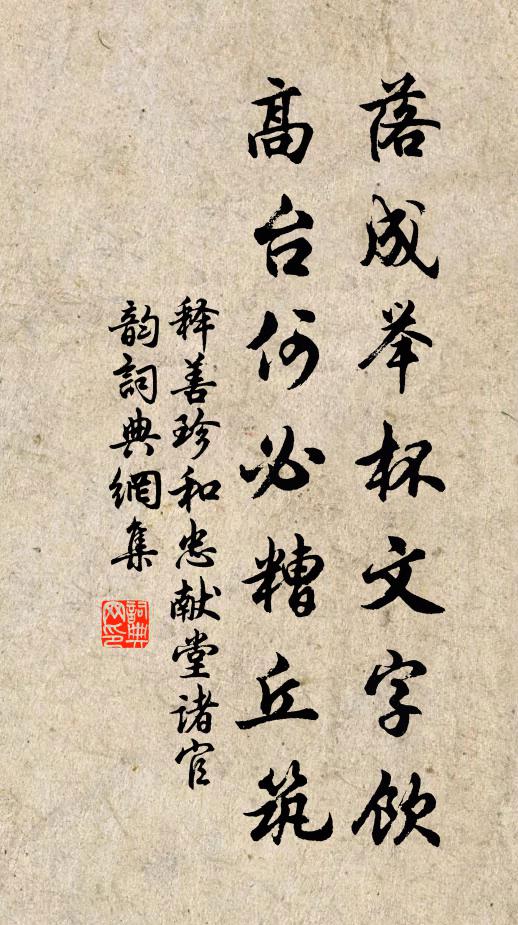 落成举杯文字飲
高台何必糟丘筑
释善珍和忠献堂诸官
韵詞典網集
詞典
网印